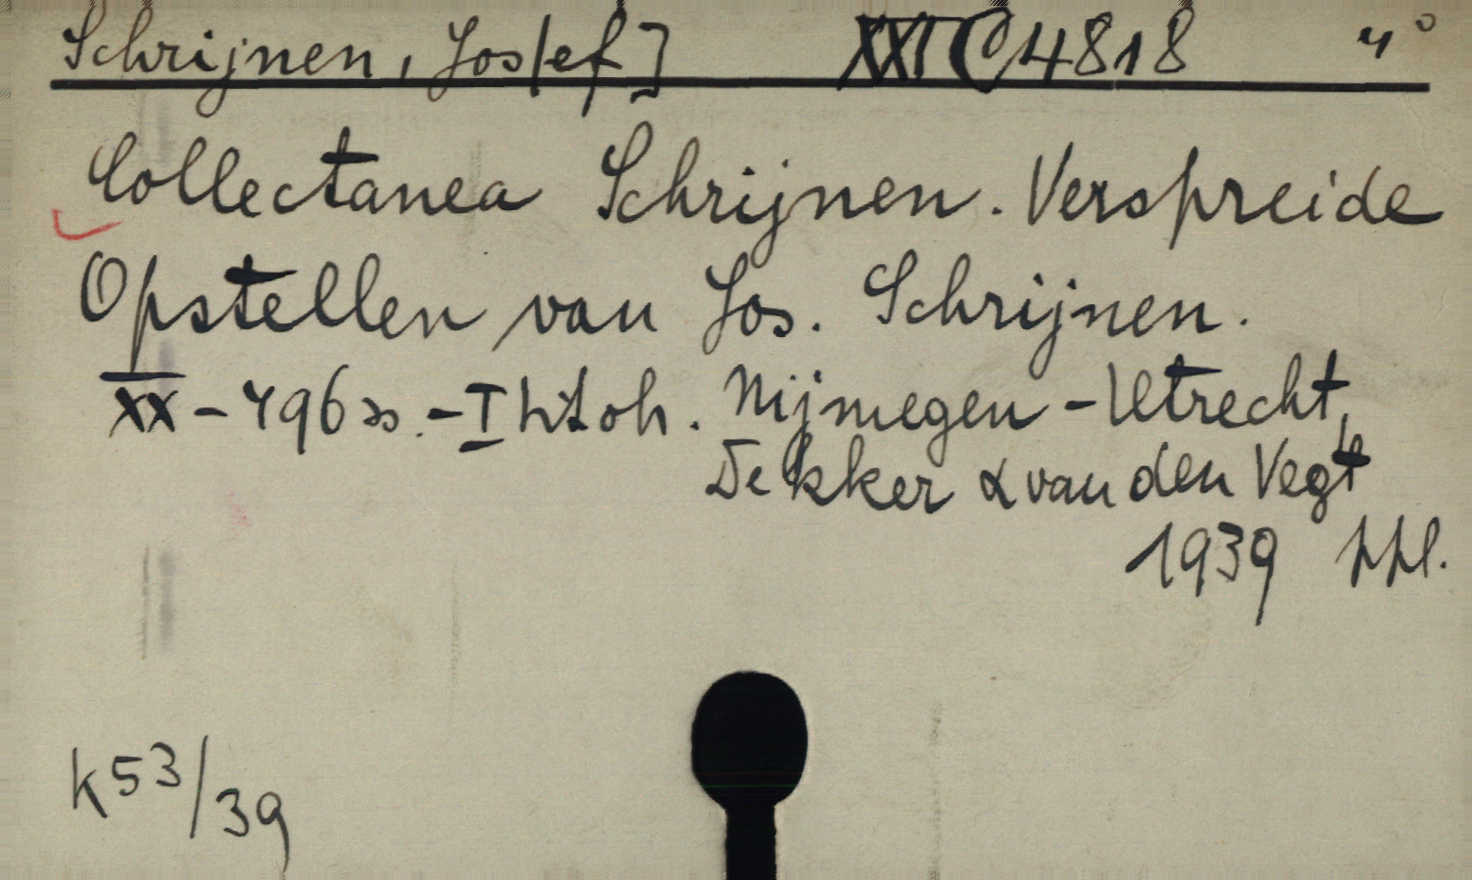 Schrijnen, Jos[ef] XXI C 4818 4°
Collectanea Schrijnen. Verspreide
Opstellen van Jos. Schrijnen.
XX - 496 ss. - I
Nijmegen - Utrecht,
Dekker & van den Vegt
1939 ppl.
K 53/39